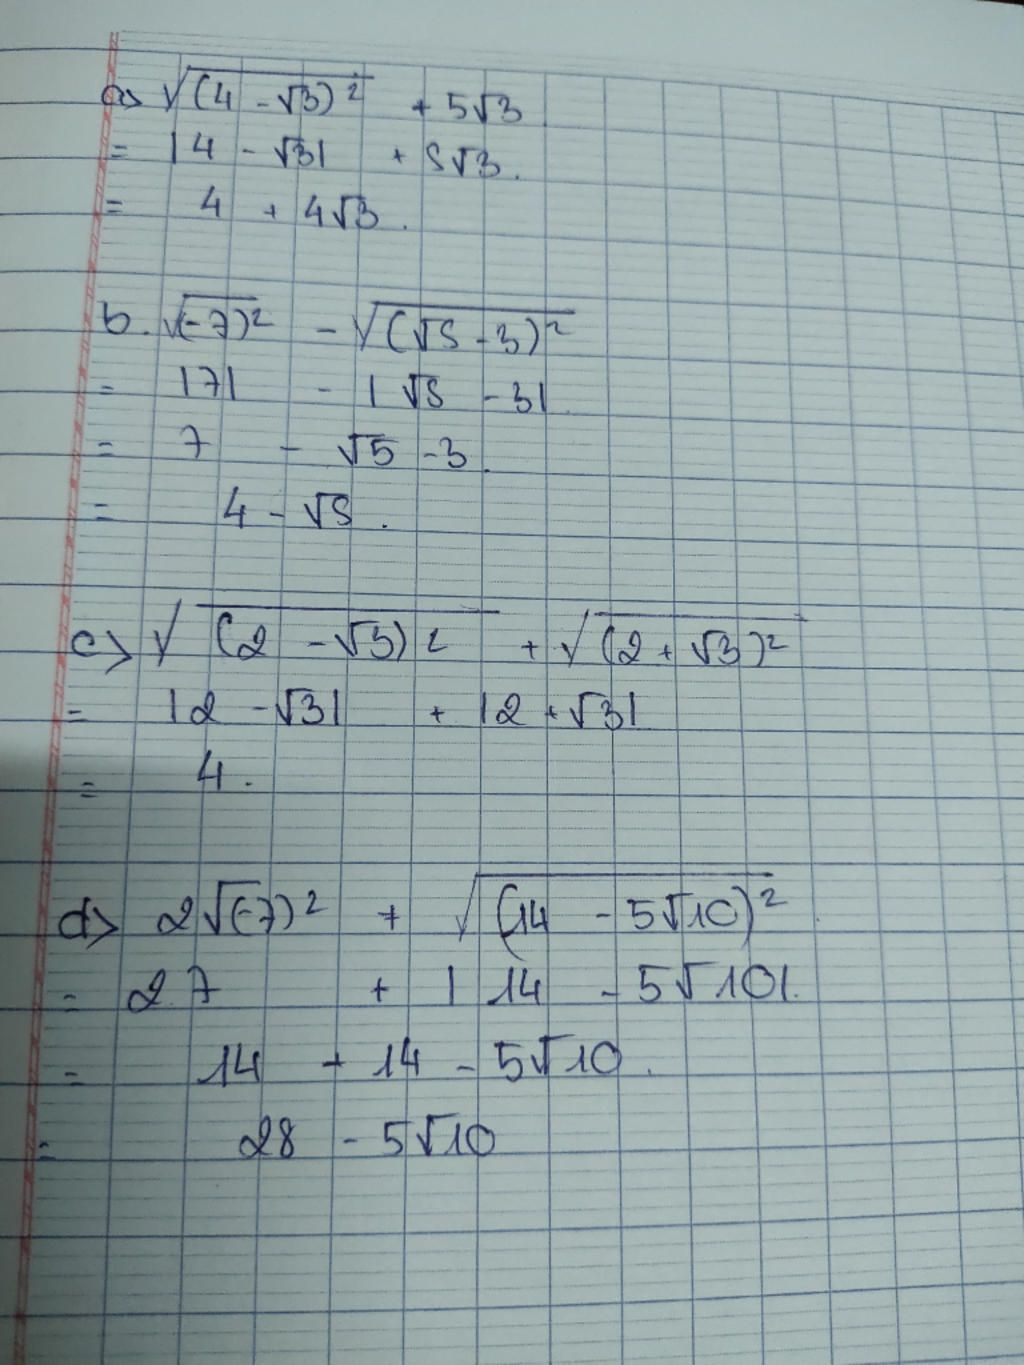 a> √(4 - √3)² + 5√3
= |4 - √3| + 5√3.
= 4 + 4√3.
b. √(-7)² - √(√5 - 3)²
= |7| - |√5 - 3|.
= 7 - √5 - 3.
= 4 - √5.
c> √(2 - √3)² + √(2 + √3)²
= |2 - √3| + |2 + √3|
= 4.
d> 2√(-7)² + √(14 - 5√10)².
= 2.7 + |14 - 5√10|.
= 14 + 14 - 5√10.
= 28 - 5√10